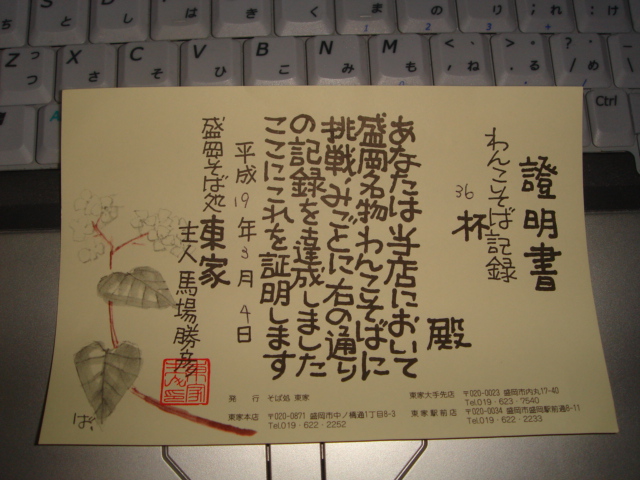 證明書
わんこそば記録
36 杯
殿
あなたは当店において
盛岡名物わんこそばに
挑戦みごとに右の通り
の記録を達成しました
ここにこれを証明します
平成 19 年 3 月 4 日
盛岡そば処 東家
主人 馬場勝彦
発 行 そば処 東家
東家本店 〒020-0871 盛岡市中ノ橋通1丁目8-3
Tel.019・622・2252
東家大手先店 〒020-0023 盛岡市内丸17-40
Tel.019・623・7540
東家駅前店 〒020-0034 盛岡市盛岡駅前通8-11
Tel.019・622・2233
Z つ っ
X さ
C そ
V ひ
B こ
N み
M も
< 、 , ね
> 。 . る
? ・ / め
Ctrl